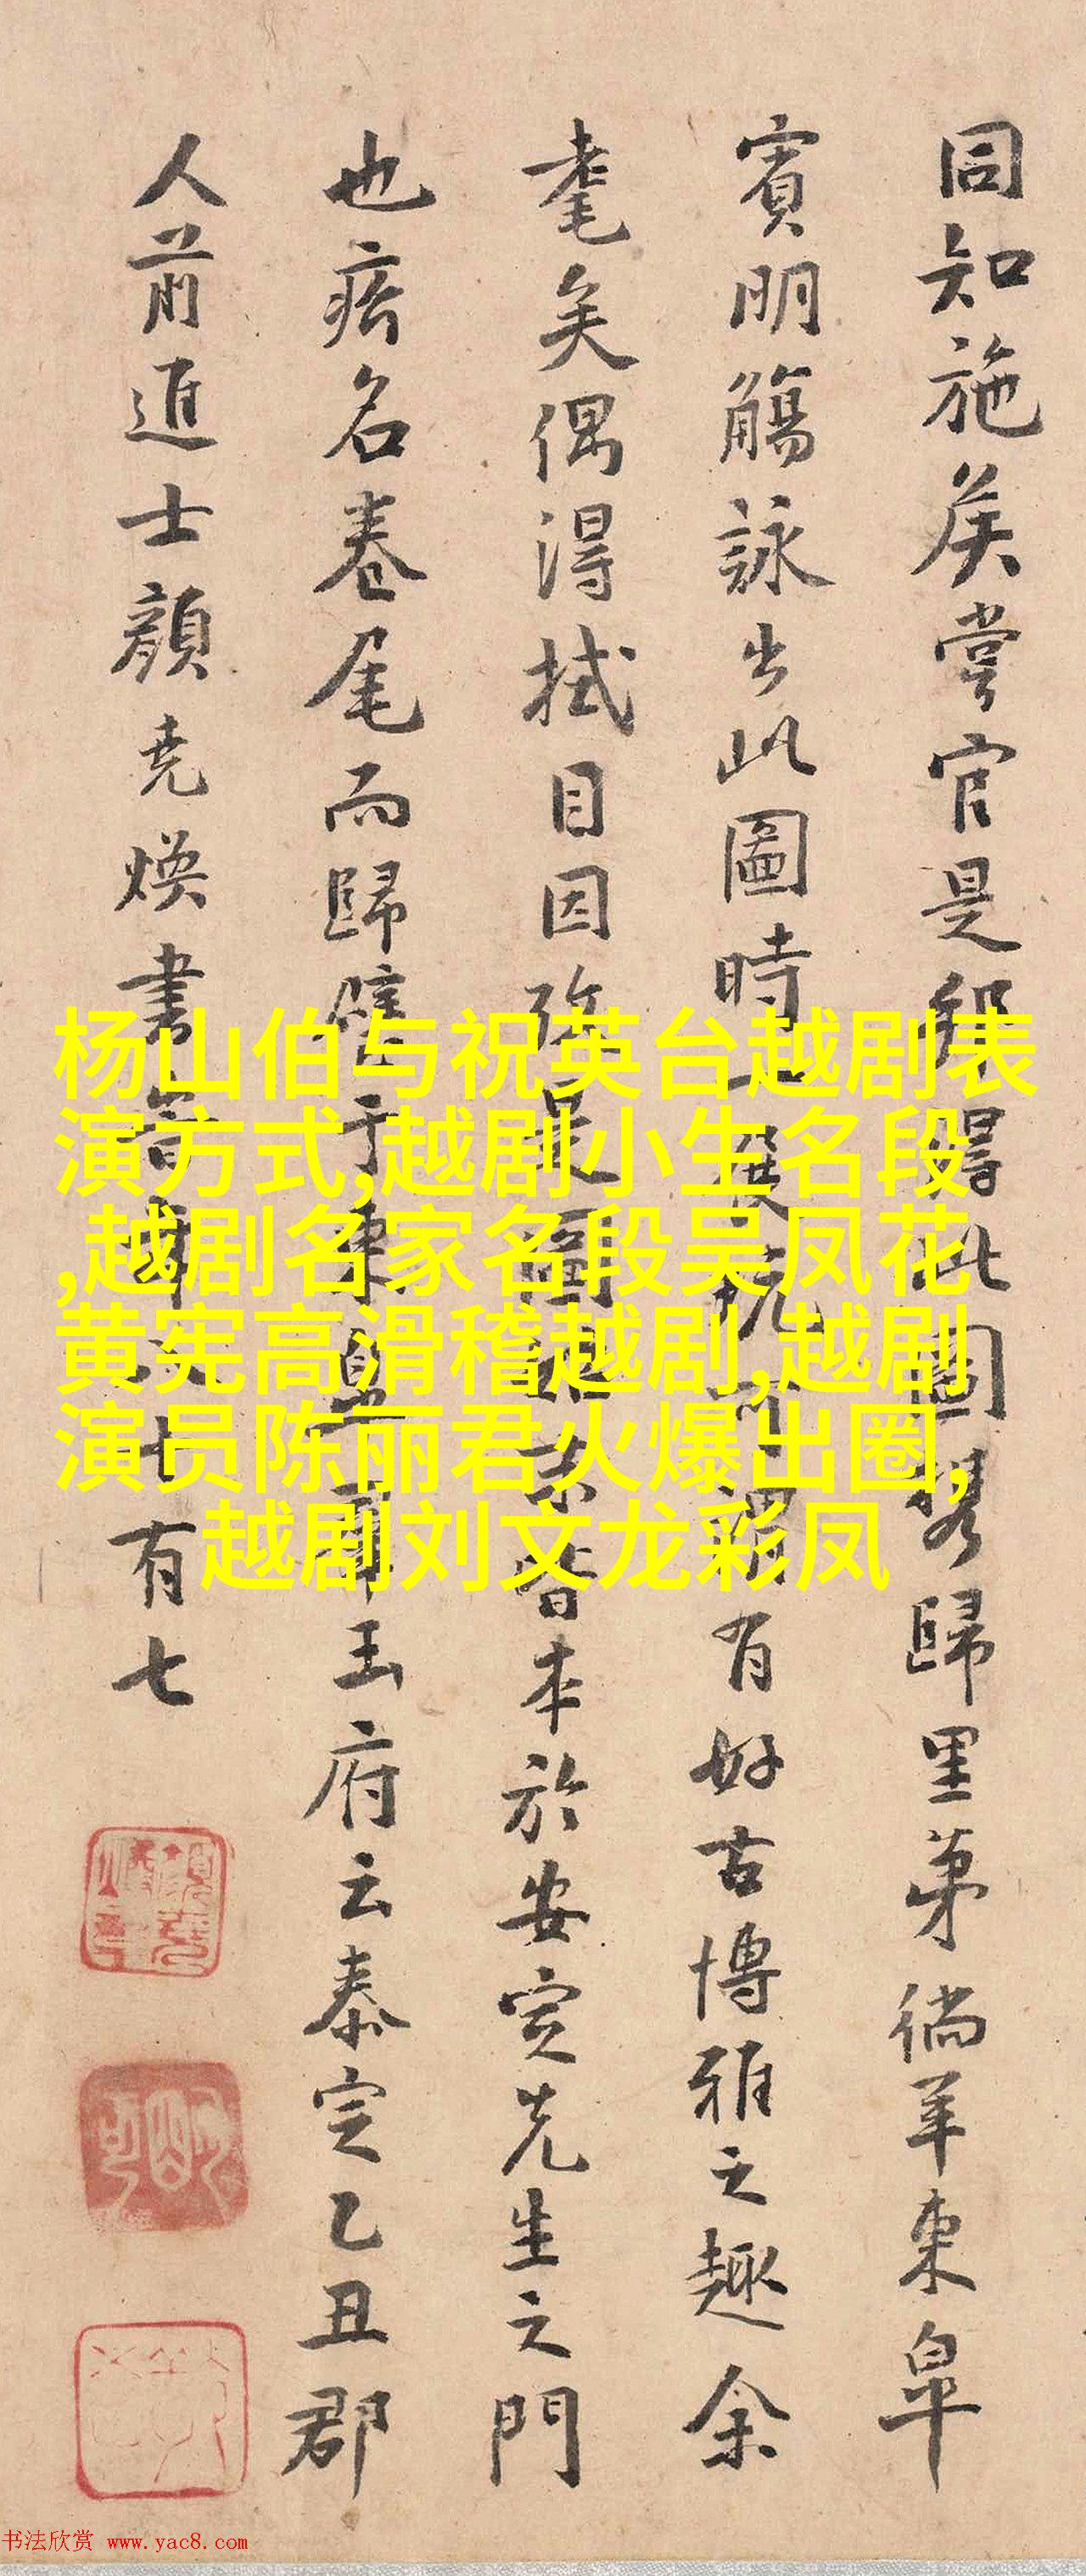 同知施矦嘗官是邦得此圖携歸里第徜羊東皐
賓明觴詠出此圖時一展玩可謂有好古博雅之趣余
耄矣偶得拭目因是圖皆本於安定先生之門
也名卷尾而歸璧于東皐玉府云泰定乙丑郡
人前進士顔尭煥書旹年八十有七
杨山伯与祝英台越剧表
演方式,越剧小生名段
,越剧名家名段吴凤花
黄宪高滑稽越剧,越剧
演员陈丽君火爆出圈,
越剧刘文龙彩凤
书法欣赏 www.yac8.com